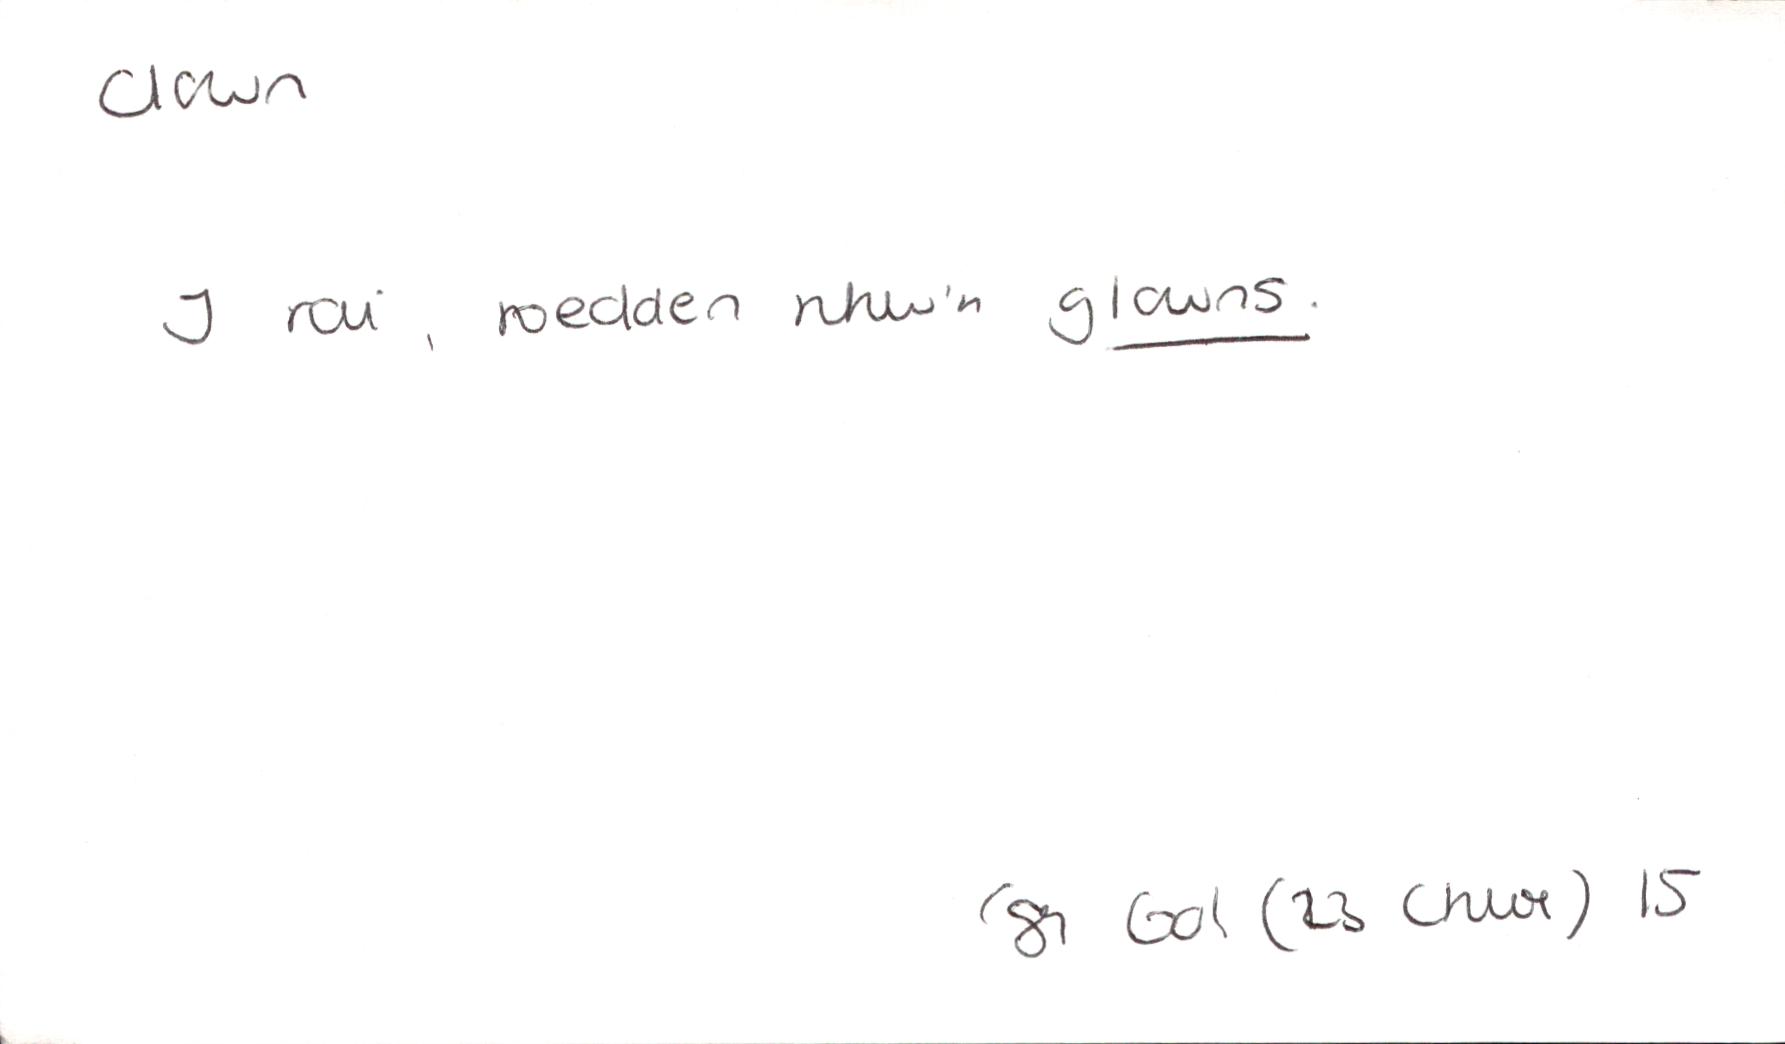 clown
I rai, roedden nhw'n glowns.
Gol (23 Chwe) 15